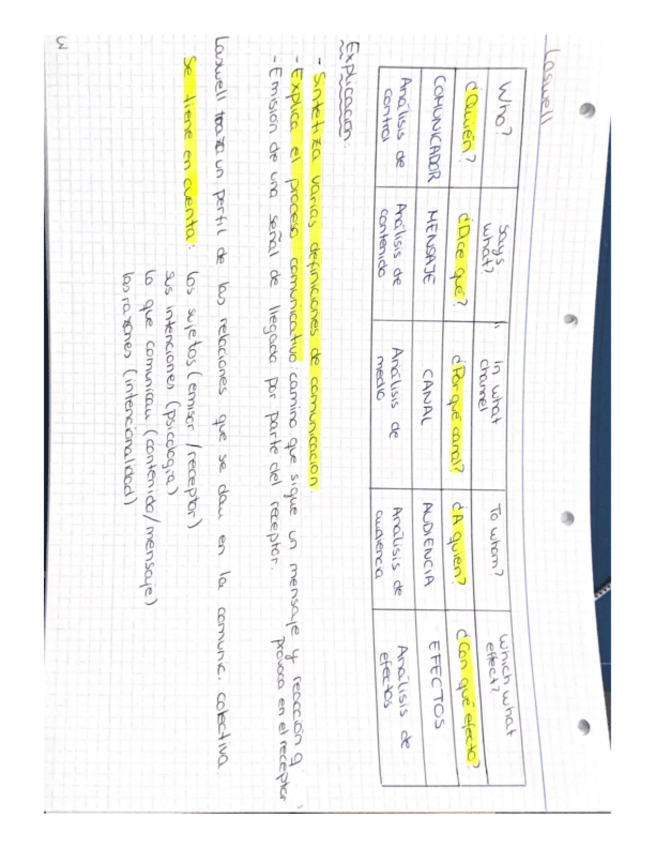 Laswell
Who? Says what? In what channel To whom? Which what effect?
¿Quién? ¿Dice qué? ¿Por qué canal? ¿A quien? ¿Con qué efecto?
COMUNICADOR MENSAJE CANAL AUDIENCIA EFECTOS
Análisis de control Análisis de contenido Análisis de medio Análisis de audiencia Análisis de efectos
Explicación:
- Sintetiza varias definiciones de comunicación
- Explica el proceso comunicativo camino que sigue un mensaje y reacción q
provoca en el receptor
- Emisión de una señal de llegada por parte del receptor.
Laswell traza un perfil de las relaciones que se dan en la comunic. colectiva.
Se tiene en cuenta: los sujetos (emisor / receptor)
sus intenciones (psicología)
lo que comunican (contenido/mensaje)
las razones (intencionalidad)